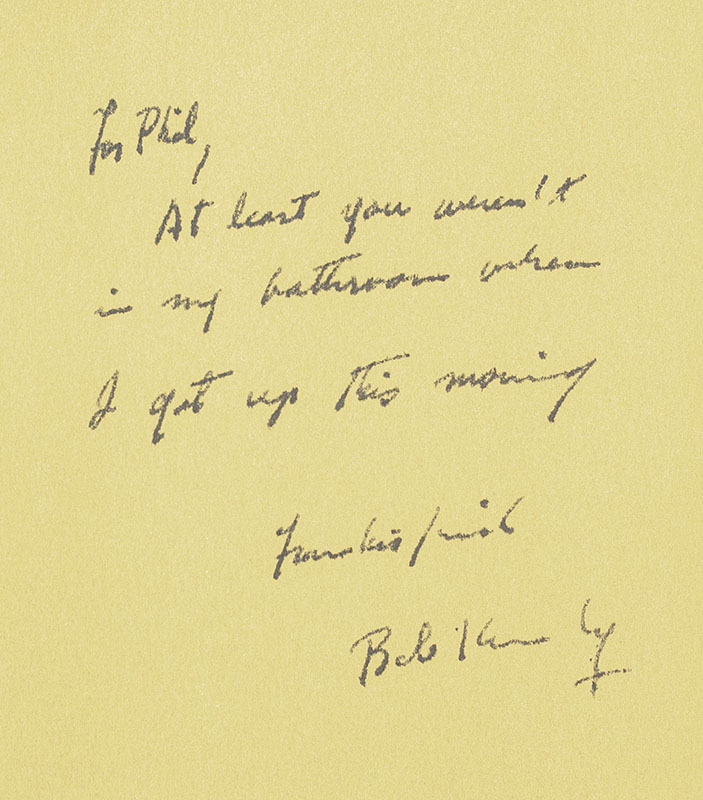 For Phil,
At least you weren't
in my bathroom when
I got up this morning
Bob Kennedy